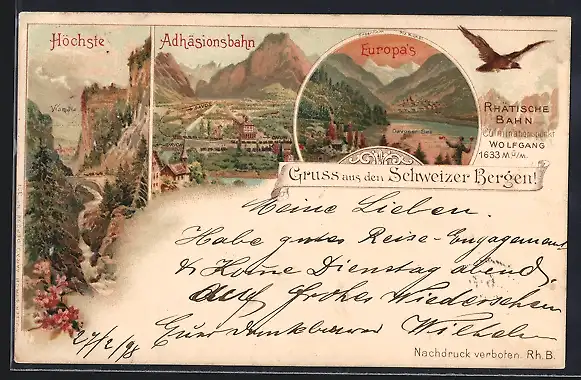 Höchste Adhäsionsbahn Europa's
Viamala
DAVOS
Davoser See
RHÄTISCHE
BAHN
Culminationspunkt
WOLFGANG
1633 M.ü/M.
Gruss aus den Schweizer Bergen!
Meine Lieben.
Habe gutes Reise-Engagement
& Kome Dienstag abend.
auf frohes Wiedersehen
27/2/98 Euer dankbarer Wilhelm
Nachdruck verboten. Rh.B.